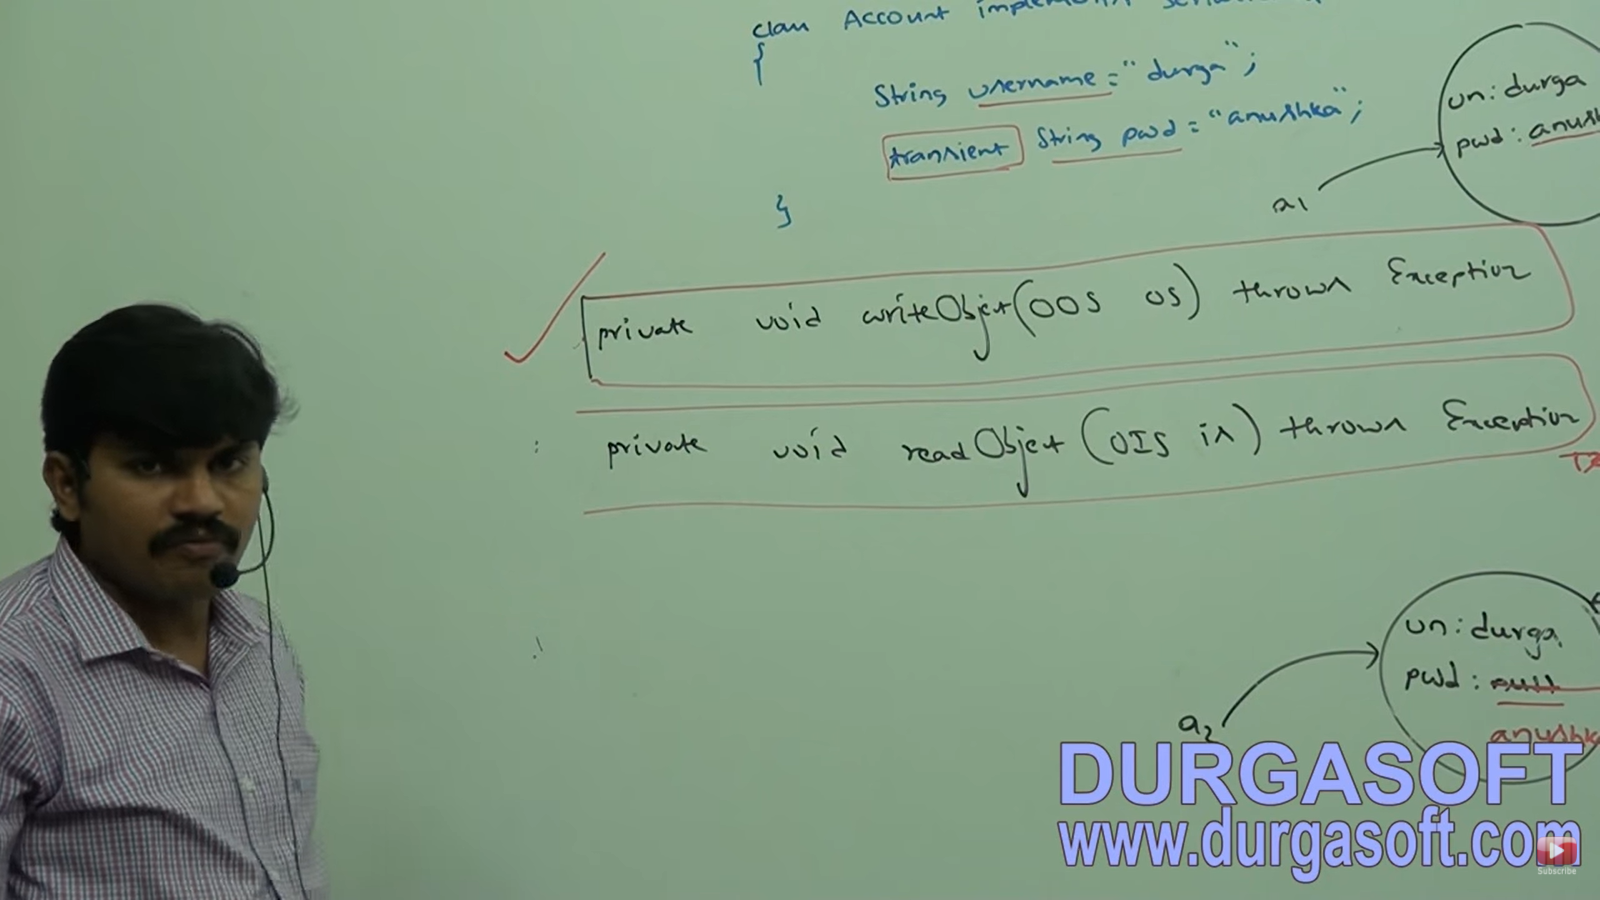 class Account implements
{
String username = "durga";
transient String pwd = "anushka";
}
un: durga
pwd: anush
a1
private void writeObject(OOS os) throws Exception
private void readObject (OIS is) throws Exception
un: durga
pwd: null
anushka
a2
DURGASOFT
www.durgasoft.com
Subscribe